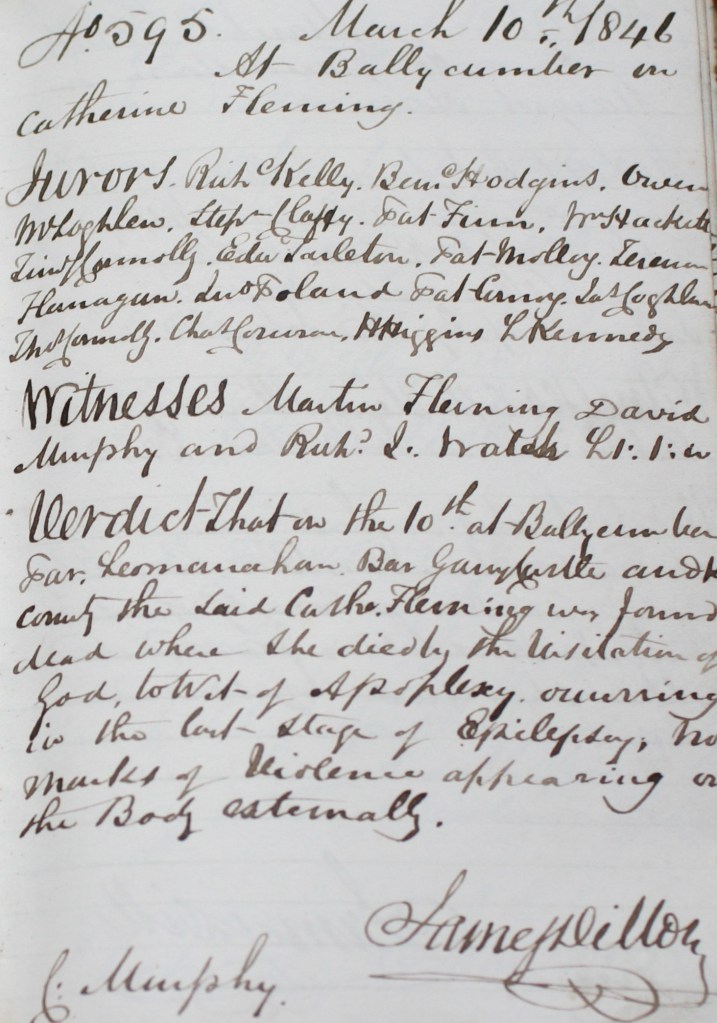 No 595. March 10th. 1846
At Ballycumber on
Catherine Fleming.
Jurors. Richd Kelly. Benn Hodgins. Owen
McLoghlen. Stepn Claffy. Pat Finn. Wm Hackett
Timy Connolly. Edw Tarleton. Pat Molloy.
Flanagan. Jno Foland Pat Jas Coghlan
Thos Connolly. Chas Corcoran. H Higgins L Kennedy
Witnesses Martin Fleming David
Murphy and Richd
Verdict That on the 10th. at Ballycumber
Par. Leomanahan. Bar Garrycastle and K
county the said Cathe. Fleming was found
dead where she died by the Visitation of
God, to Wit of Apoplexy. occurring
in the last stage of Epilepsy, no
marks of Violence appearing on
the Body externally.
James Dillon
C. Murphy.